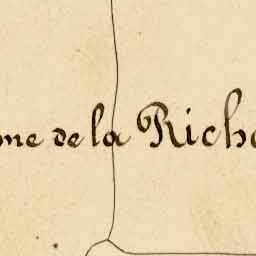 me de la Riche